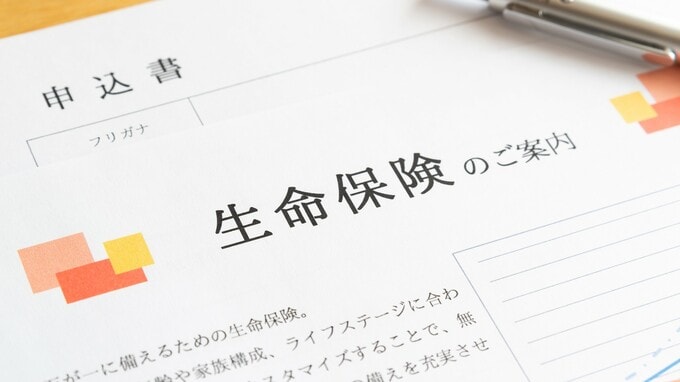 申込書
フリガナ
生命保険のご案内
が一に備えるための生命保険。
齢や家族構成、ライフステージに合わ
スタマイズすることで、無
備えを充実させ